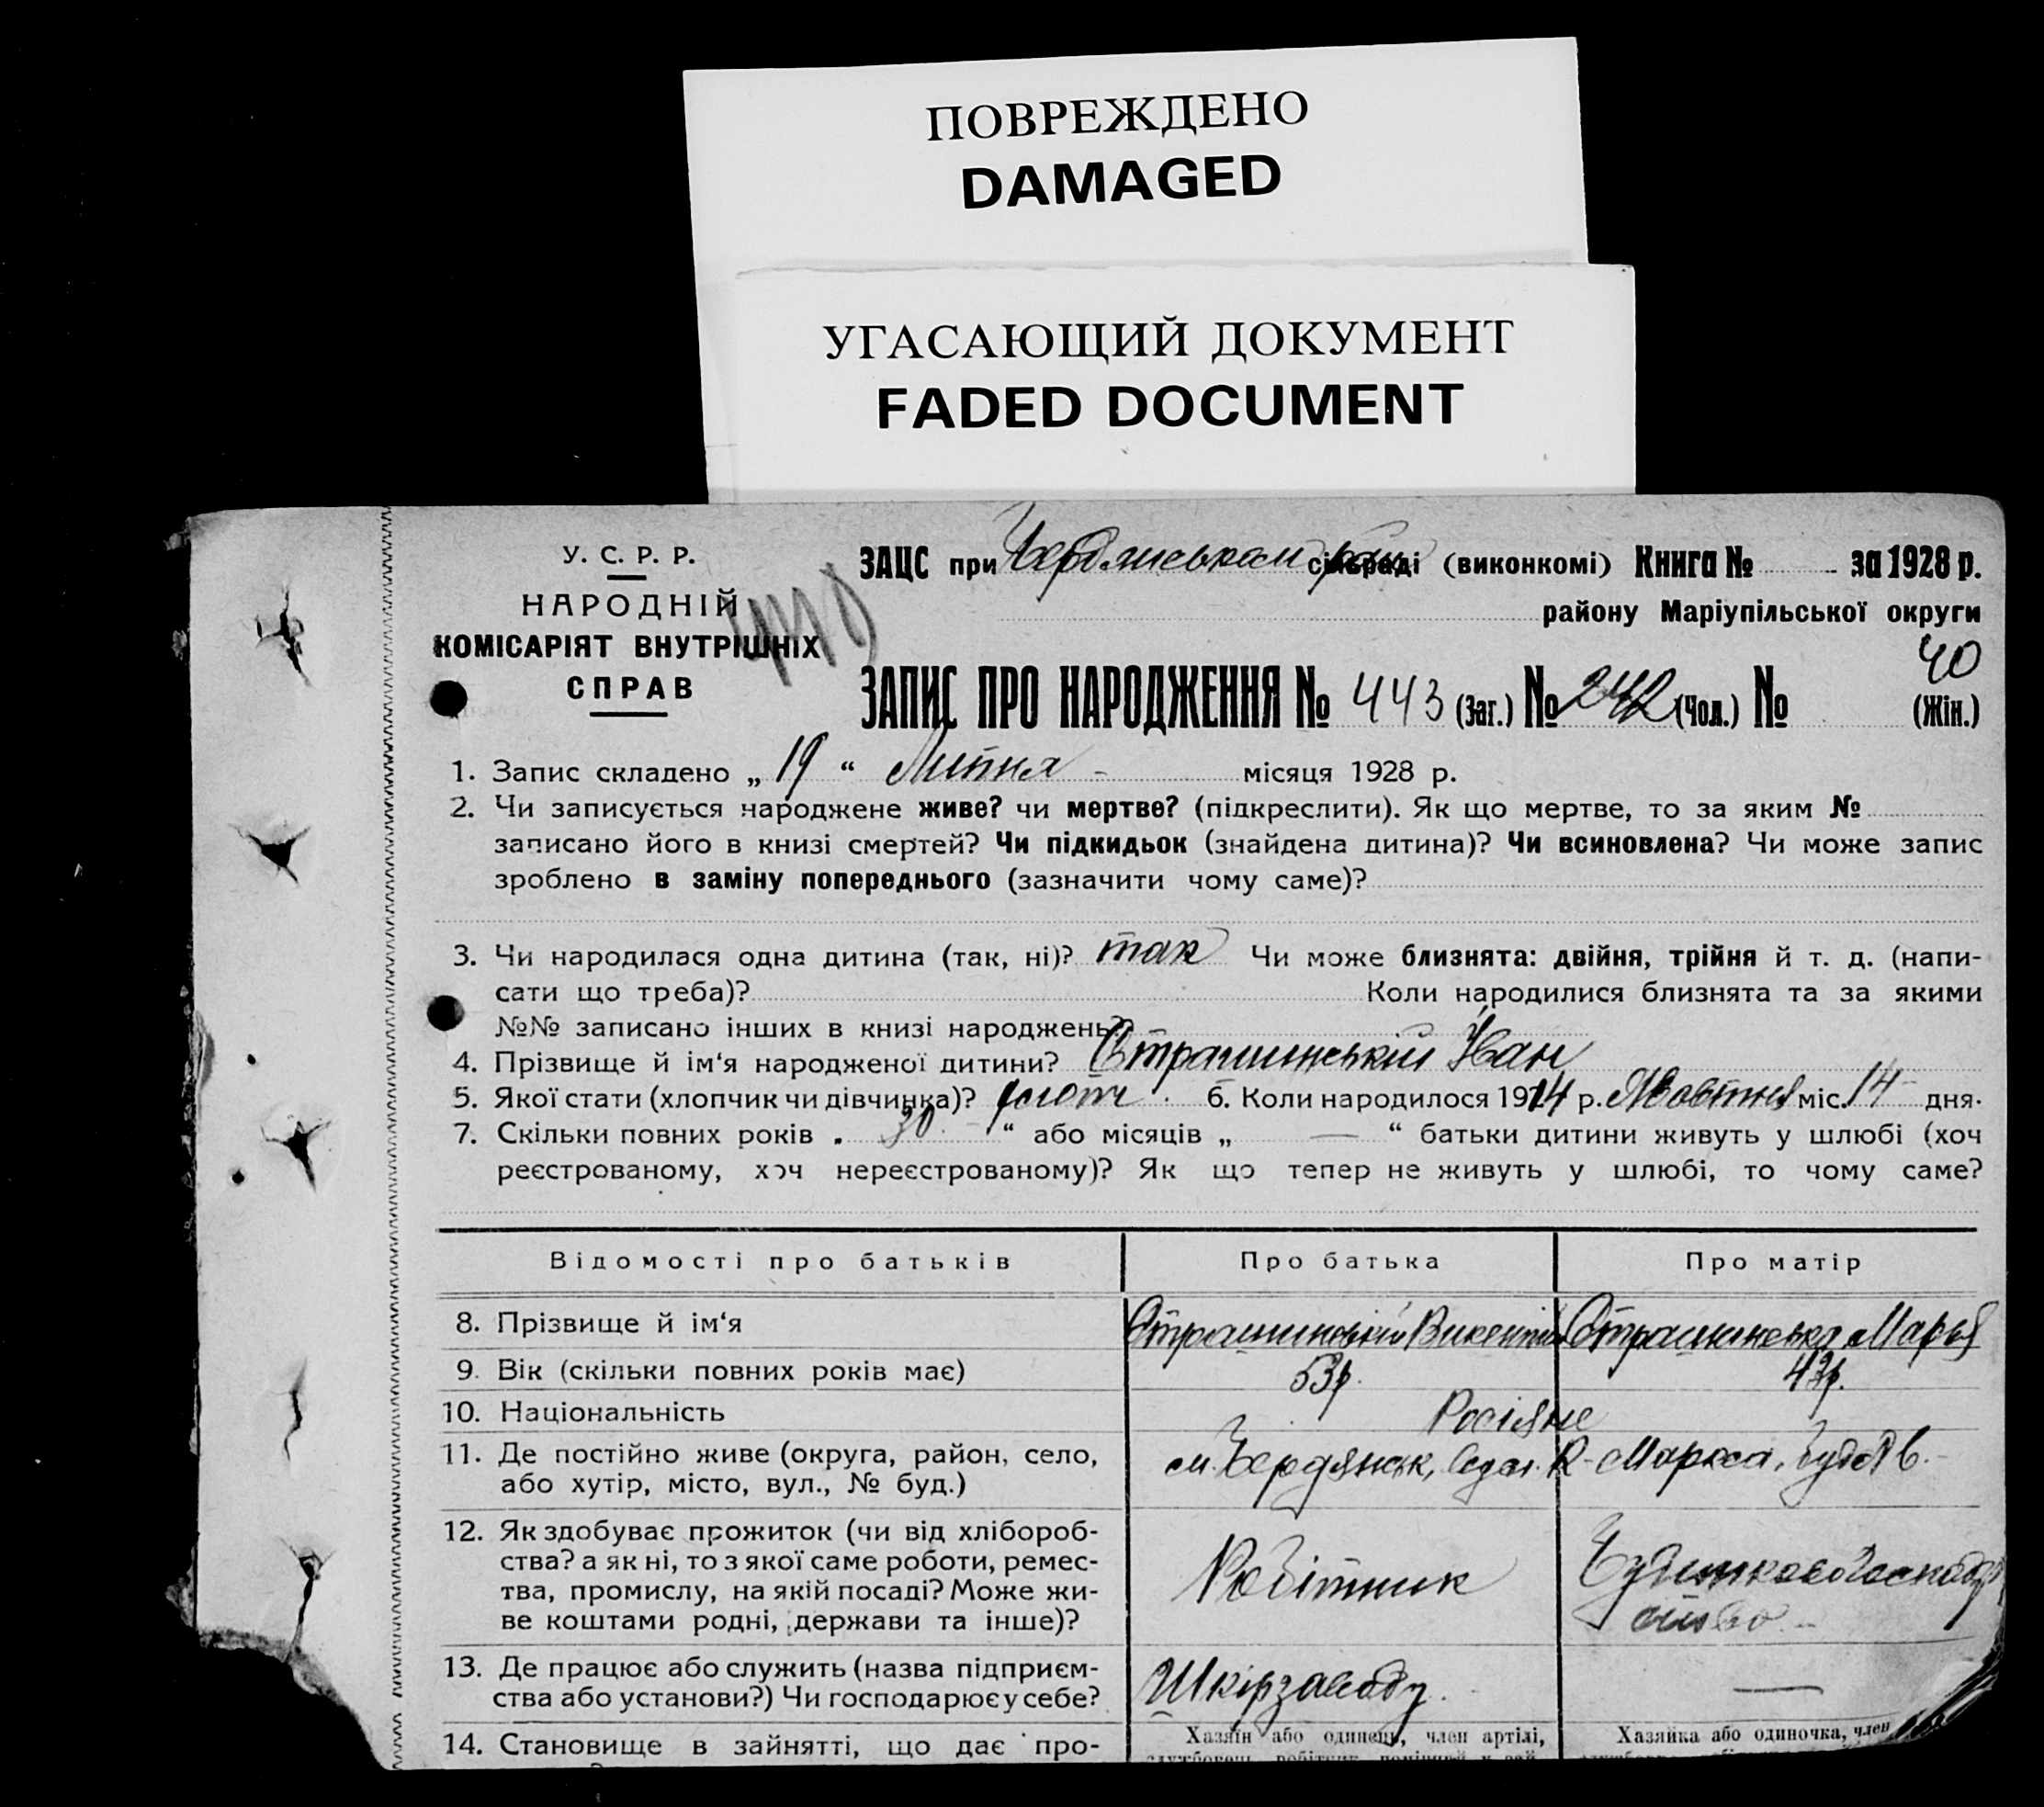 ПОВРЕЖДЕНО
DAMAGED
УГАСАЮЩИЙ ДОКУМЕНТ
FADED DOCUMENT
У. С. Р. Р.
НАРОДНІЙ
КОМІСАРІЯТ ВНУТРІШНІХ
СПРАВ
ЗАЦС при Бердянськом сільраді (виконкомі) Книга № за 1928 р.
району Маріупільської округи
40
ЗАПИС ПРО НАРОДЖЕННЯ № 443 (Заг.) № 242 (Чол.) № (Жін.)
1. Запис складено „ 19 “ Липня - місяця 1928 р.
2. Чи записується народжене живе? чи мертве? (підкреслити). Як що мертве, то за яким №
записано його в книзі смертей? Чи підкидьок (знайдена дитина)? Чи всиновлена? Чи може запис
зроблено в заміну попереднього (зазначити чому саме)?
3. Чи народилася одна дитина (так, ні)? так Чи може близнята: двійня, трійня й т. д. (напи-
сати що треба)? Коли народилися близнята та за якими
№№ записано інших в книзі народжень?
4. Прізвище й ім‘я народженої дитини? Страшинській Іван
5. Якої стати (хлопчик чи дівчинка)? хлопч. 6. Коли народилося 1914 р. Жовтня міс. 14 дня.
7. Скільки повних років „ 30 “ або місяців „ — “ батьки дитини живуть у шлюбі (хоч
реєстрованому, хоч нереєстрованому)? Як що тепер не живуть у шлюбі, то чому саме?
Відомості про батьків Про батька Про матір
8. Прізвище й ім‘я Страшинській Викентій Страшинська Марья
9. Вік (скільки повних років має) 53р. 43р.
10. Національність Росіяне
11. Де постійно живе (округа, район, село,
або хутір, місто, вул., № буд.) м. Бердянськ, К-Маркса,
12. Як здобуває прожиток (чи від хлібороб-
ства? а як ні, то з якої саме роботи, ремес-
тва, промислу, на якій посаді? Може жи-
ве коштами родні, держави та інше)? Робітник
13. Де працює або служить (назва підприєм-
ства або установи?) Чи господарює у себе? Шкірзаводу. —
14. Становище в зайнятті, що дає про-
Хазяїн або одинець, член артілі,
Хазяйка або одиночка, член